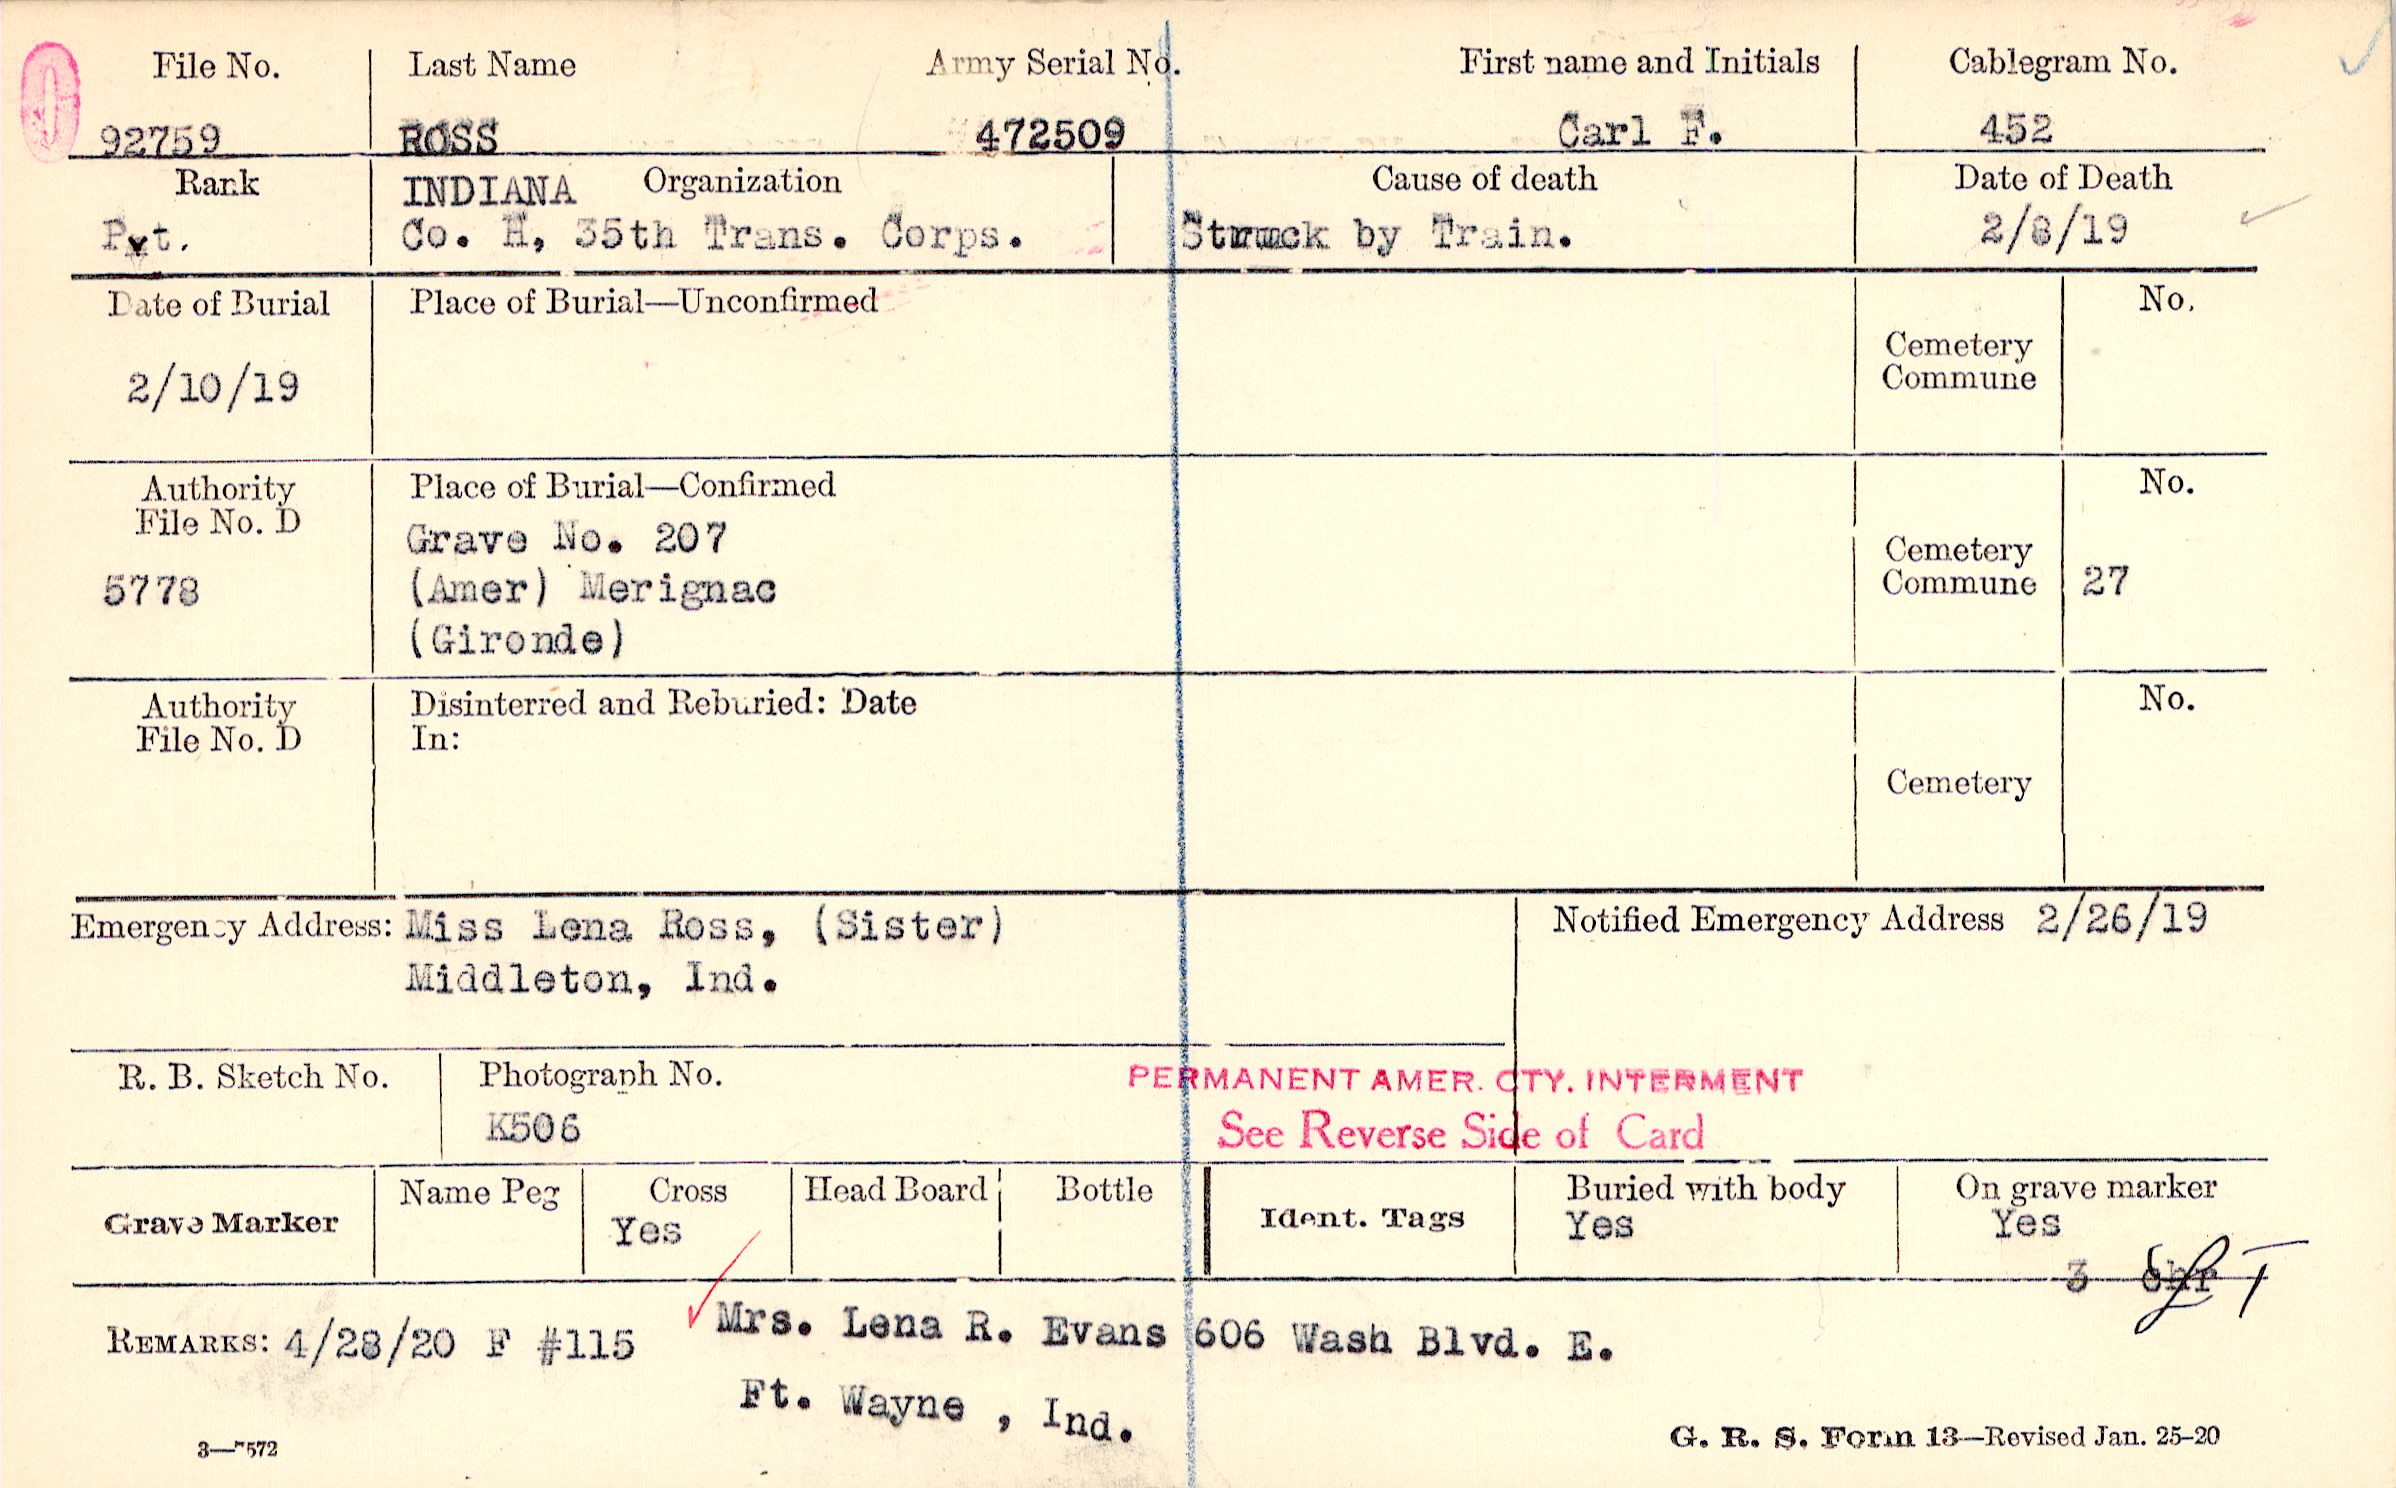 File No. Last Name Army Serial No. First name and Initials Cablegram No.
92759 ROSS 472509 Carl F. 452
Rank INDIANA Organization Cause of death Date of Death
Pvt. Co. H, 35th Trans. Corps. Struck by Train. 2/8/19
Date of Burial Place of Burial—Unconfirmed No.
2/10/19 Cemetery
Commune
Authority Place of Burial—Confirmed No.
File No. D Grave No. 207
5778 (Amer) Merignac Cemetery
Commune 27
(Gironde)
Authority Disinterred and Reburied: Date No.
File No. D In:
Cemetery
Emergency Address: Miss Lena Ross, (Sister) Notified Emergency Address 2/26/19
Middleton, Ind.
R. B. Sketch No. Photograph No. PERMANENT AMER. CTY. INTERMENT
K506 See Reverse Side of Card
Grave Marker Name Peg Cross Head Board Bottle Ident. Tags Buried with body On grave marker
Yes Yes Yes
3
REMARKS: 4/28/20 F #115 Mrs. Lena R. Evans 606 Wash Blvd. E.
Ft. Wayne , Ind.
3—7572 G. R. S. Form 13—Revised Jan. 25-20